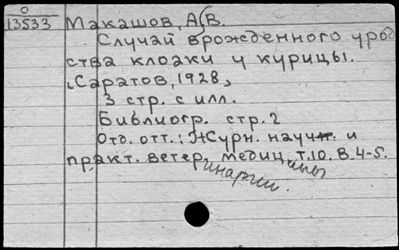 0
13533
Макашов, А. В.
Случай врожденного урод
ства клоаки у курицы.
Саратов, 1928,
3 стр. с илл.
Библиогр. стр. 2
Отд. отт.: Журн. научн. и
практ. ветеринарии. медицины т. 10. В. 4-5.